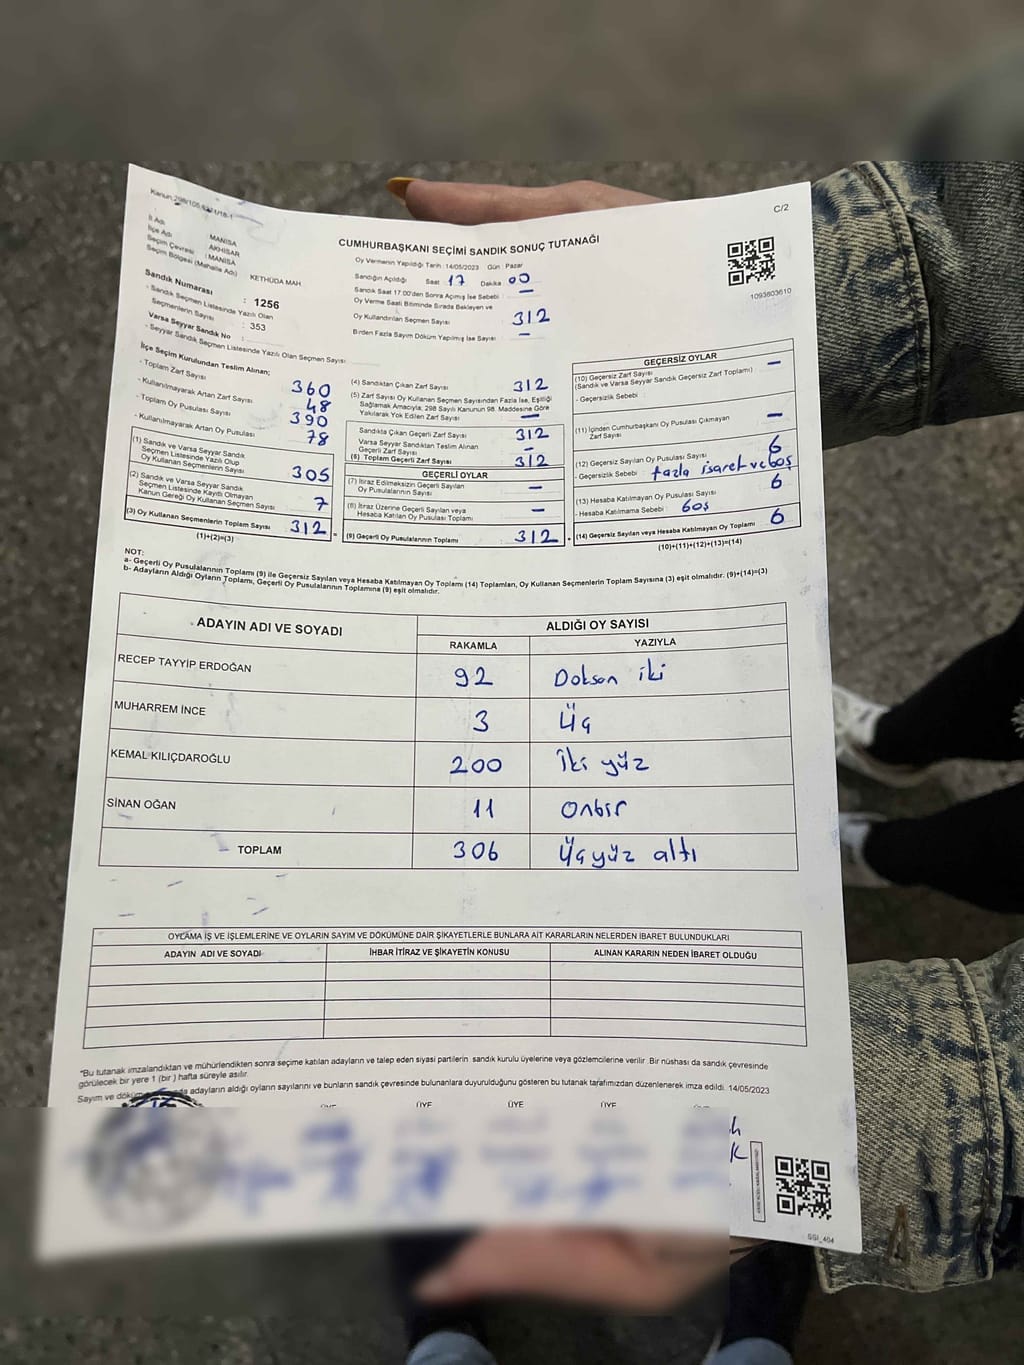 Kanun 298/105
C/2
İl Adı : MANİSA
İlçe Adı : AKHİSAR
Seçim Çevresi : MANİSA
Seçim Bölgesi (Mahalle Adı) KETHÜDA MAH
Sandık Numarası : 1256
- Sandık Seçmen Listesinde Yazılı Olan
Seçmenlerin Sayısı : 353
Varsa Seyyar Sandık No :
- Seyyar Sandık Seçmen Listesinde Yazılı Olan Seçmen Sayısı
CUMHURBAŞKANI SEÇİMİ SANDIK SONUÇ TUTANAĞI
Oy Vermenin Yapıldığı Tarih : 14/05/2023 Gün : Pazar
Sandığın Açıldığı Saat 17 Dakika 00
Sandık Saat 17:00'den Sonra Açımış İse Sebebi : —
Oy Verme Saati Bitiminde Sırada Bekleyen ve
Oy Kullandırılan Seçmen Sayısı 312
Birden Fazla Sayım Döküm Yapılmış İse Sayısı —
1093603610
İlçe Seçim Kurulundan Teslim Alınan;
- Toplam Zarf Sayısı 360
- Kullanılmayarak Artan Zarf Sayısı 48
- Toplam Oy Pusulası Sayısı 390
- Kullanılmayarak Artan Oy Pusulası 78
(1) Sandık ve Varsa Seyyar Sandık
Seçmen Listesinde Yazılı Olup
Oy Kullanan Seçmenlerin Sayısı 305
(2) Sandık ve Varsa Seyyar Sandık
Seçmen Listesinde Kayıtlı Olmayan
Kanun Gereği Oy Kullanan Seçmen Sayısı 7
(3) Oy Kullanan Seçmenlerin Toplam Sayısı 312 =
(1)+(2)=(3)
(4) Sandıktan Çıkan Zarf Sayısı 312
(5) Zarf Sayısı Oy Kullanan Seçmen Sayısından Fazla İse, Eşitliği
Sağlamak Amacıyla, 298 Sayılı Kanunun 98. Maddesine Göre
Yakılarak Yok Edilen Zarf Sayısı —
Sandıkta Çıkan Geçerli Zarf Sayısı 312
Varsa Seyyar Sandıktan Teslim Alınan
Geçerli Zarf Sayısı —
(6) Toplam Geçerli Zarf Sayısı 312
GEÇERLİ OYLAR
(7) İtiraz Edilmeksizin Geçerli Sayılan
Oy Pusulalarının Sayısı —
(8) İtiraz Üzerine Geçerli Sayılan veya
Hesaba Katılan Oy Pusulası Toplamı —
(9) Geçerli Oy Pusulalarının Toplamı 312
GEÇERSİZ OYLAR
(10) Geçersiz Zarf Sayısı —
(Sandık ve Varsa Seyyar Sandık Geçersiz Zarf Toplamı)
- Geçersizlik Sebebi
(11) İçinden Cumhurbaşkanı Oy Pusulası Çıkmayan
Zarf Sayısı —
(12) Geçersiz Sayılan Oy Pusulası Sayısı 6
- Geçersizlik Sebebi : fazla isaret ve boş
(13) Hesaba Katılmayan Oy Pusulası Sayısı 6
- Hesaba Katılmama Sebebi : boş
(14) Geçersiz Sayılan veya Hesaba Katılmayan Oy Toplamı 6
(10)+(11)+(12)+(13)=(14)
NOT:
a- Geçerli Oy Pusulalarının Toplamı (9) ile Geçersiz Sayılan veya Hesaba Katılmayan Oy Toplamı (14) Toplamları, Oy Kullanan Seçmenlerin Toplam Sayısına (3) eşit olmalıdır. (9)+(14)=(3)
b- Adayların Aldığı Oyların Toplamı, Geçerli Oy Pusulalarının Toplamına (9) eşit olmalıdır.
ADAYIN ADI VE SOYADI ALDIĞI OY SAYISI
RAKAMLA YAZIYLA
RECEP TAYYİP ERDOĞAN 92 Doksan iki
MUHARREM İNCE 3 Üç
KEMAL KILIÇDAROĞLU 200 İki yüz
SİNAN OĞAN 11 Onbir
TOPLAM 306 Üçyüz altı
OYLAMA İŞ VE İŞLEMLERİNE VE OYLARIN SAYIM VE DÖKÜMÜNE DAİR ŞİKAYETLERLE BUNLARA AİT KARARLARIN NELERDEN İBARET BULUNDUKLARI
ADAYIN ADI VE SOYADI İHBAR İTİRAZ VE ŞİKAYETİN KONUSU ALINAN KARARIN NEDEN İBARET OLDUĞU
*Bu tutanak imzalandıktan ve mühürlendikten sonra seçime katılan adayların ve talep eden siyasi partilerin sandık kurulu üyelerine veya gözlemcilerine verilir. Bir nüshası da sandık çevresinde
görülecek bir yere 1 (bir) hafta süreyle asılır.
Sayım ve adayların aldığı oyların sayılarını ve bunların sandık çevresinde bulunanlara duyurulduğunu gösteren bu tutanak tarafımızdan düzenlenerek imza edildi. 14/05/2023
ÜYE ÜYE ÜYE ÜYE
SSI_404